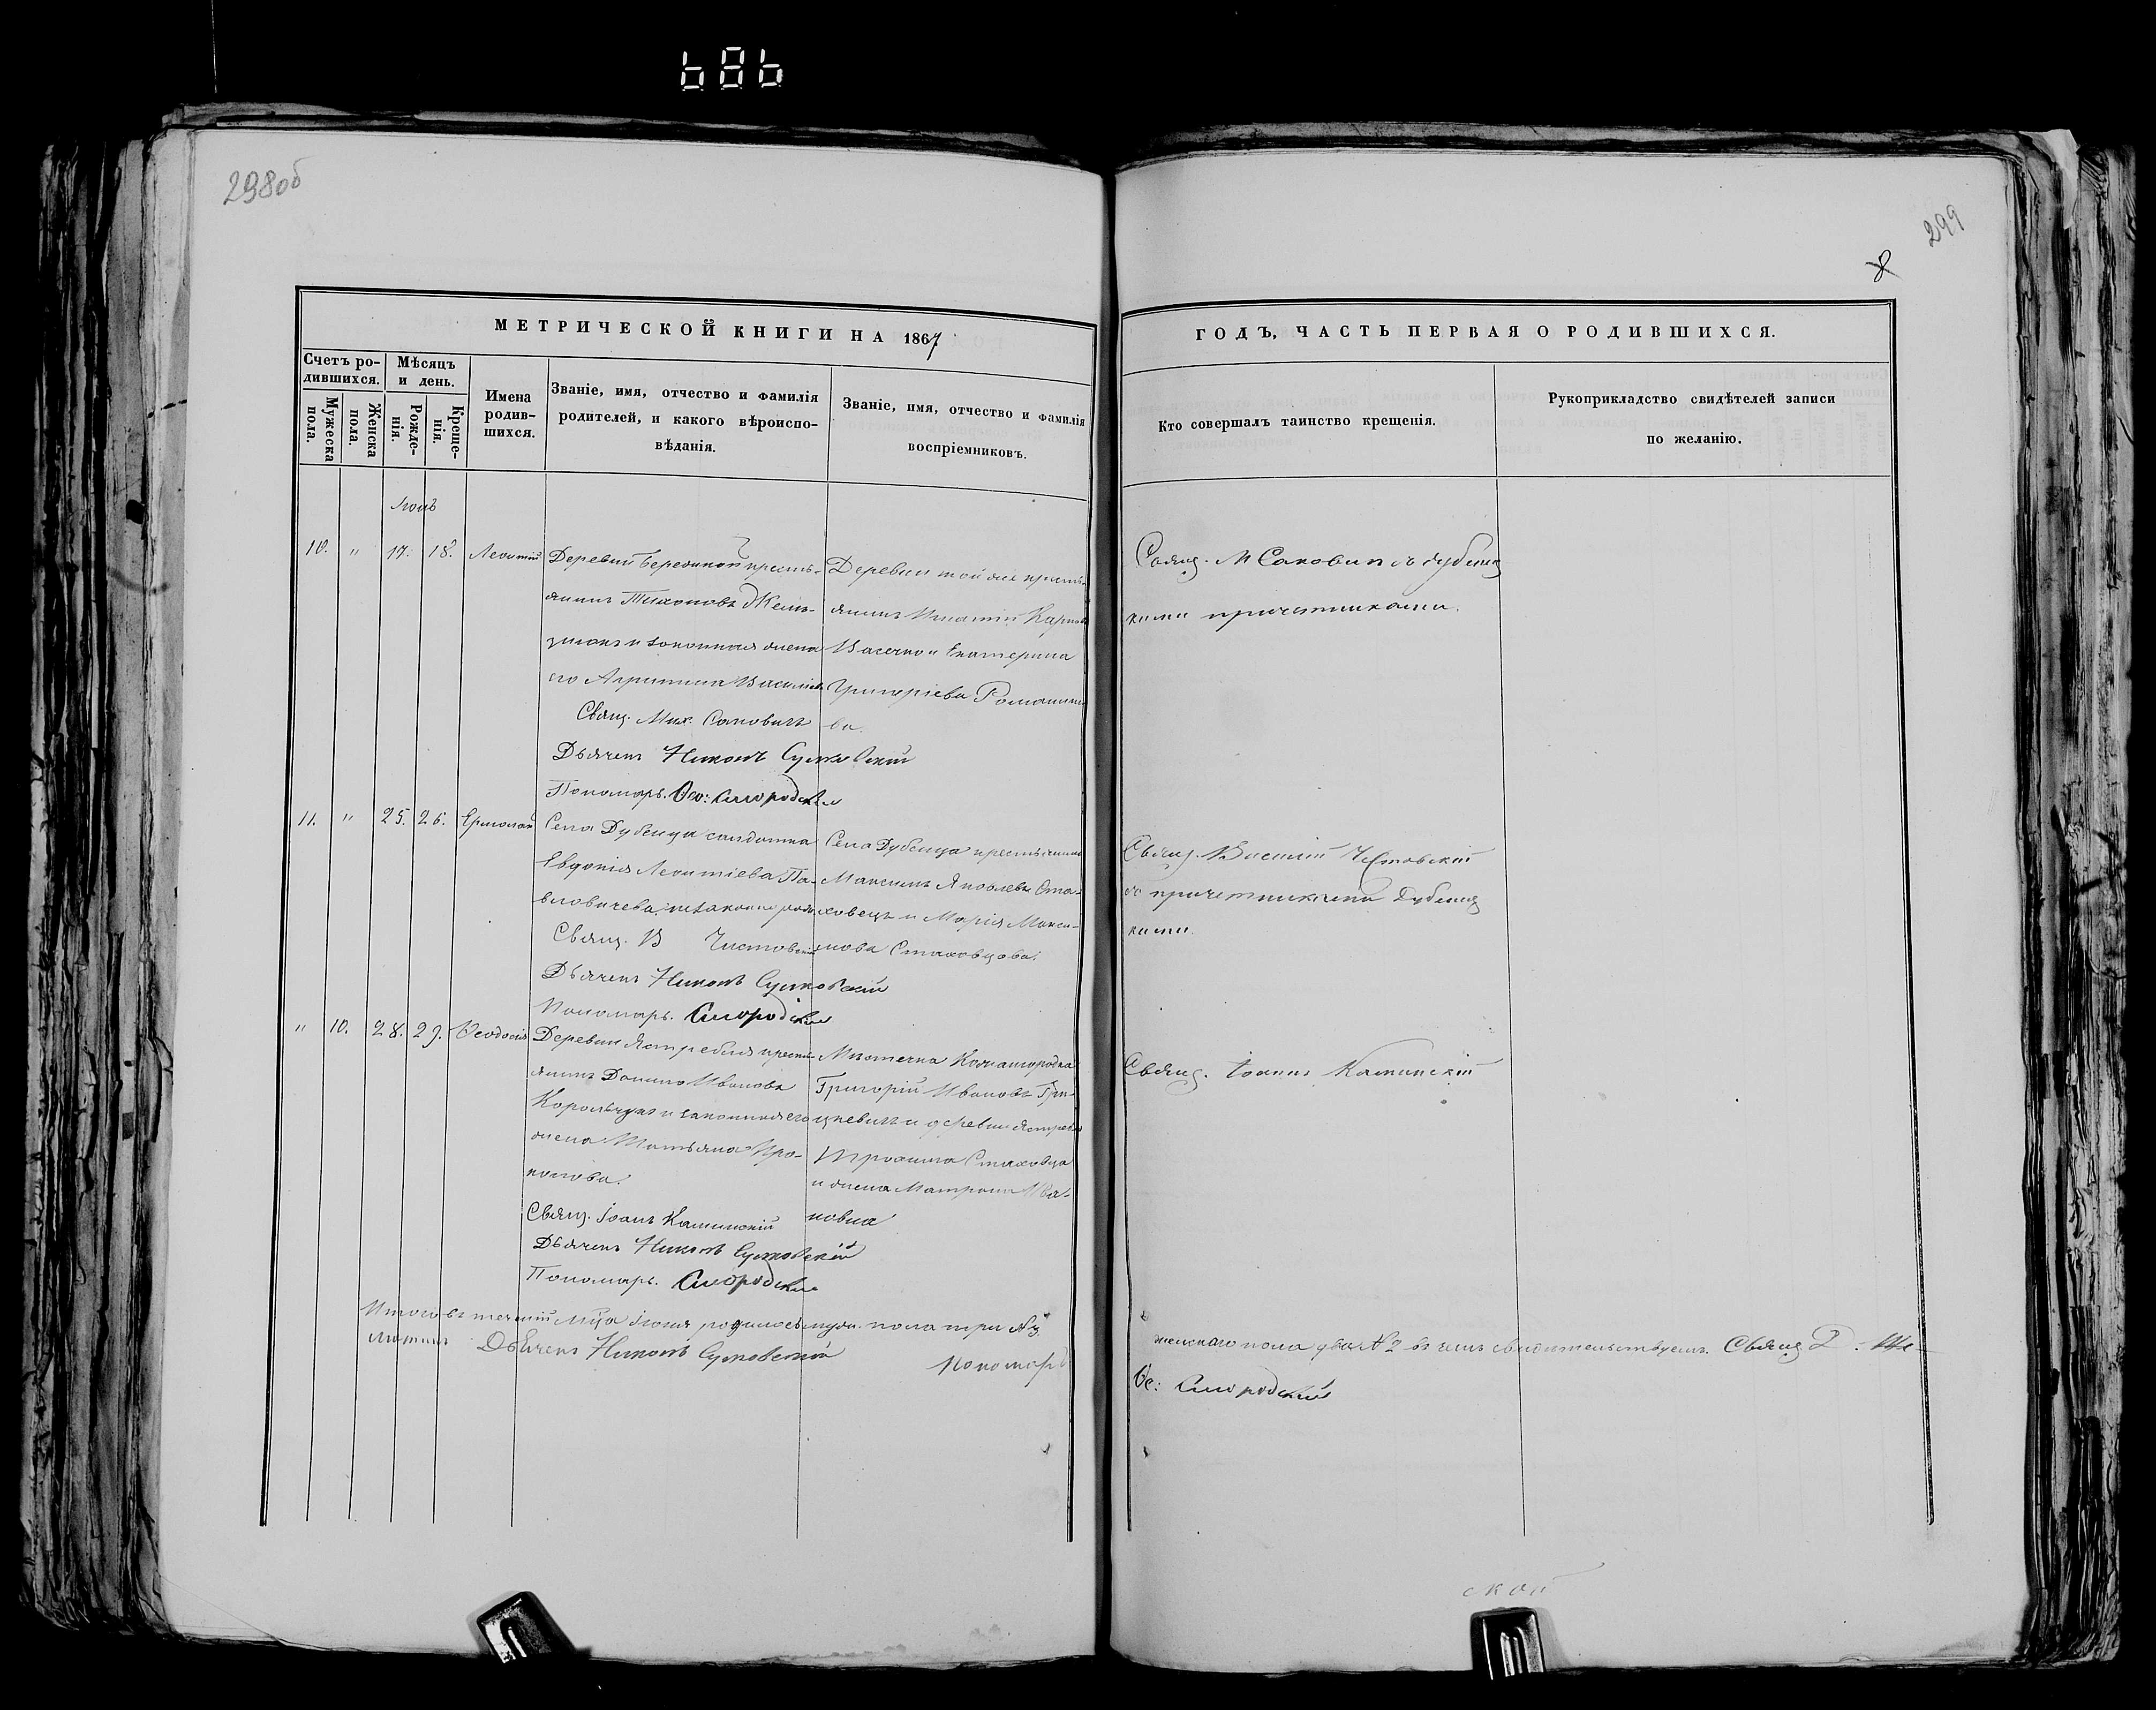 686
298об
299
8
МЕТРИЧЕСКОЙ КНИГИ НА 1867
ГОДЪ, ЧАСТЬ ПЕРВАЯ О РОДИВШИХСЯ.
Счетъ ро-
дившихся.
Мужеска
пола.
Женска
пола.
Мѣсяцъ
и день.
Рожде-
нія.
Креще-
нія.
Имена
родив-
шихся.
Званіе, имя, отчество и фамилія
родителей, и какого вѣроиспо-
вѣданія.
Званіе, имя, отчество и фамилія
воспріемниковъ.
Кто совершалъ таинство крещенія.
Рукоприкладство свидѣтелей записи
по желанію.
10. " 17. 18. Леонтій
Деревни кресть-
янинъ
и законная жена
его Василіева
Свящ. Мих. Саковичъ
Дьячекъ Никонъ
Пономарь. Смородскій
Деревни той же кресть-
янинъ Игнатій
и Екатерина
Григоріева
ва.
Свящ. М Саковичъ съ Дубенец
кими причетниками.
11. " 25. 26. Ермолай
Села Дубенца солдатка
Евдокія Леонтіева Па-
вловичева, незаконно
Свящ. В Чистовскій
Дьячекъ Никонъ
Пономарь. Смородскій
Села Дубенца крестьянинъ
Максимъ Яковлевъ Ста-
ховецъ и Марія Макси-
мова Стаховцова.
Свящ. Василій Чистовскій
съ причетниками Дубенец
кими.
" 10. 28. 29. Ѳеодосія
Деревни Ястребля кресть-
янинъ Данило Ивановъ
Корольчукъ и законная его
жена Татьяна Про-
копова.
Свящ. Іоанъ Каминскій
Дьячекъ Никонъ
Пономарь. Смородскій
Мѣстечка Кожангородка
Григорій Ивановъ Гри-
цкевичъ и деревни Ястребля
Трохима Стаховца
жена Матрона Ива-
новна
Свящ. Іоаннъ Каминскій
Итого въ теченіи родилось муж. пола три № 3
Дьячекъ Никонъ
Пономарь
женскаго пола два № 2 въ чемъ свидѣтельствуемъ. Свящ.
Ѳе: Смородскій
ской